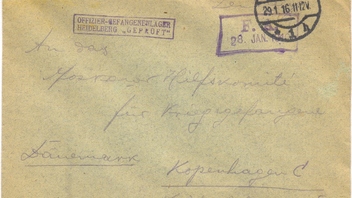 OFFIZIER-GEFANGENENLAGER
HEIDELBERG „GEPRÜFT"
F.
28. JAN.
29.1.16.11-12V.
An das
Moskauer Hilfskomite
für Kriegsgefangene
Dänemark
Kopenhagen C